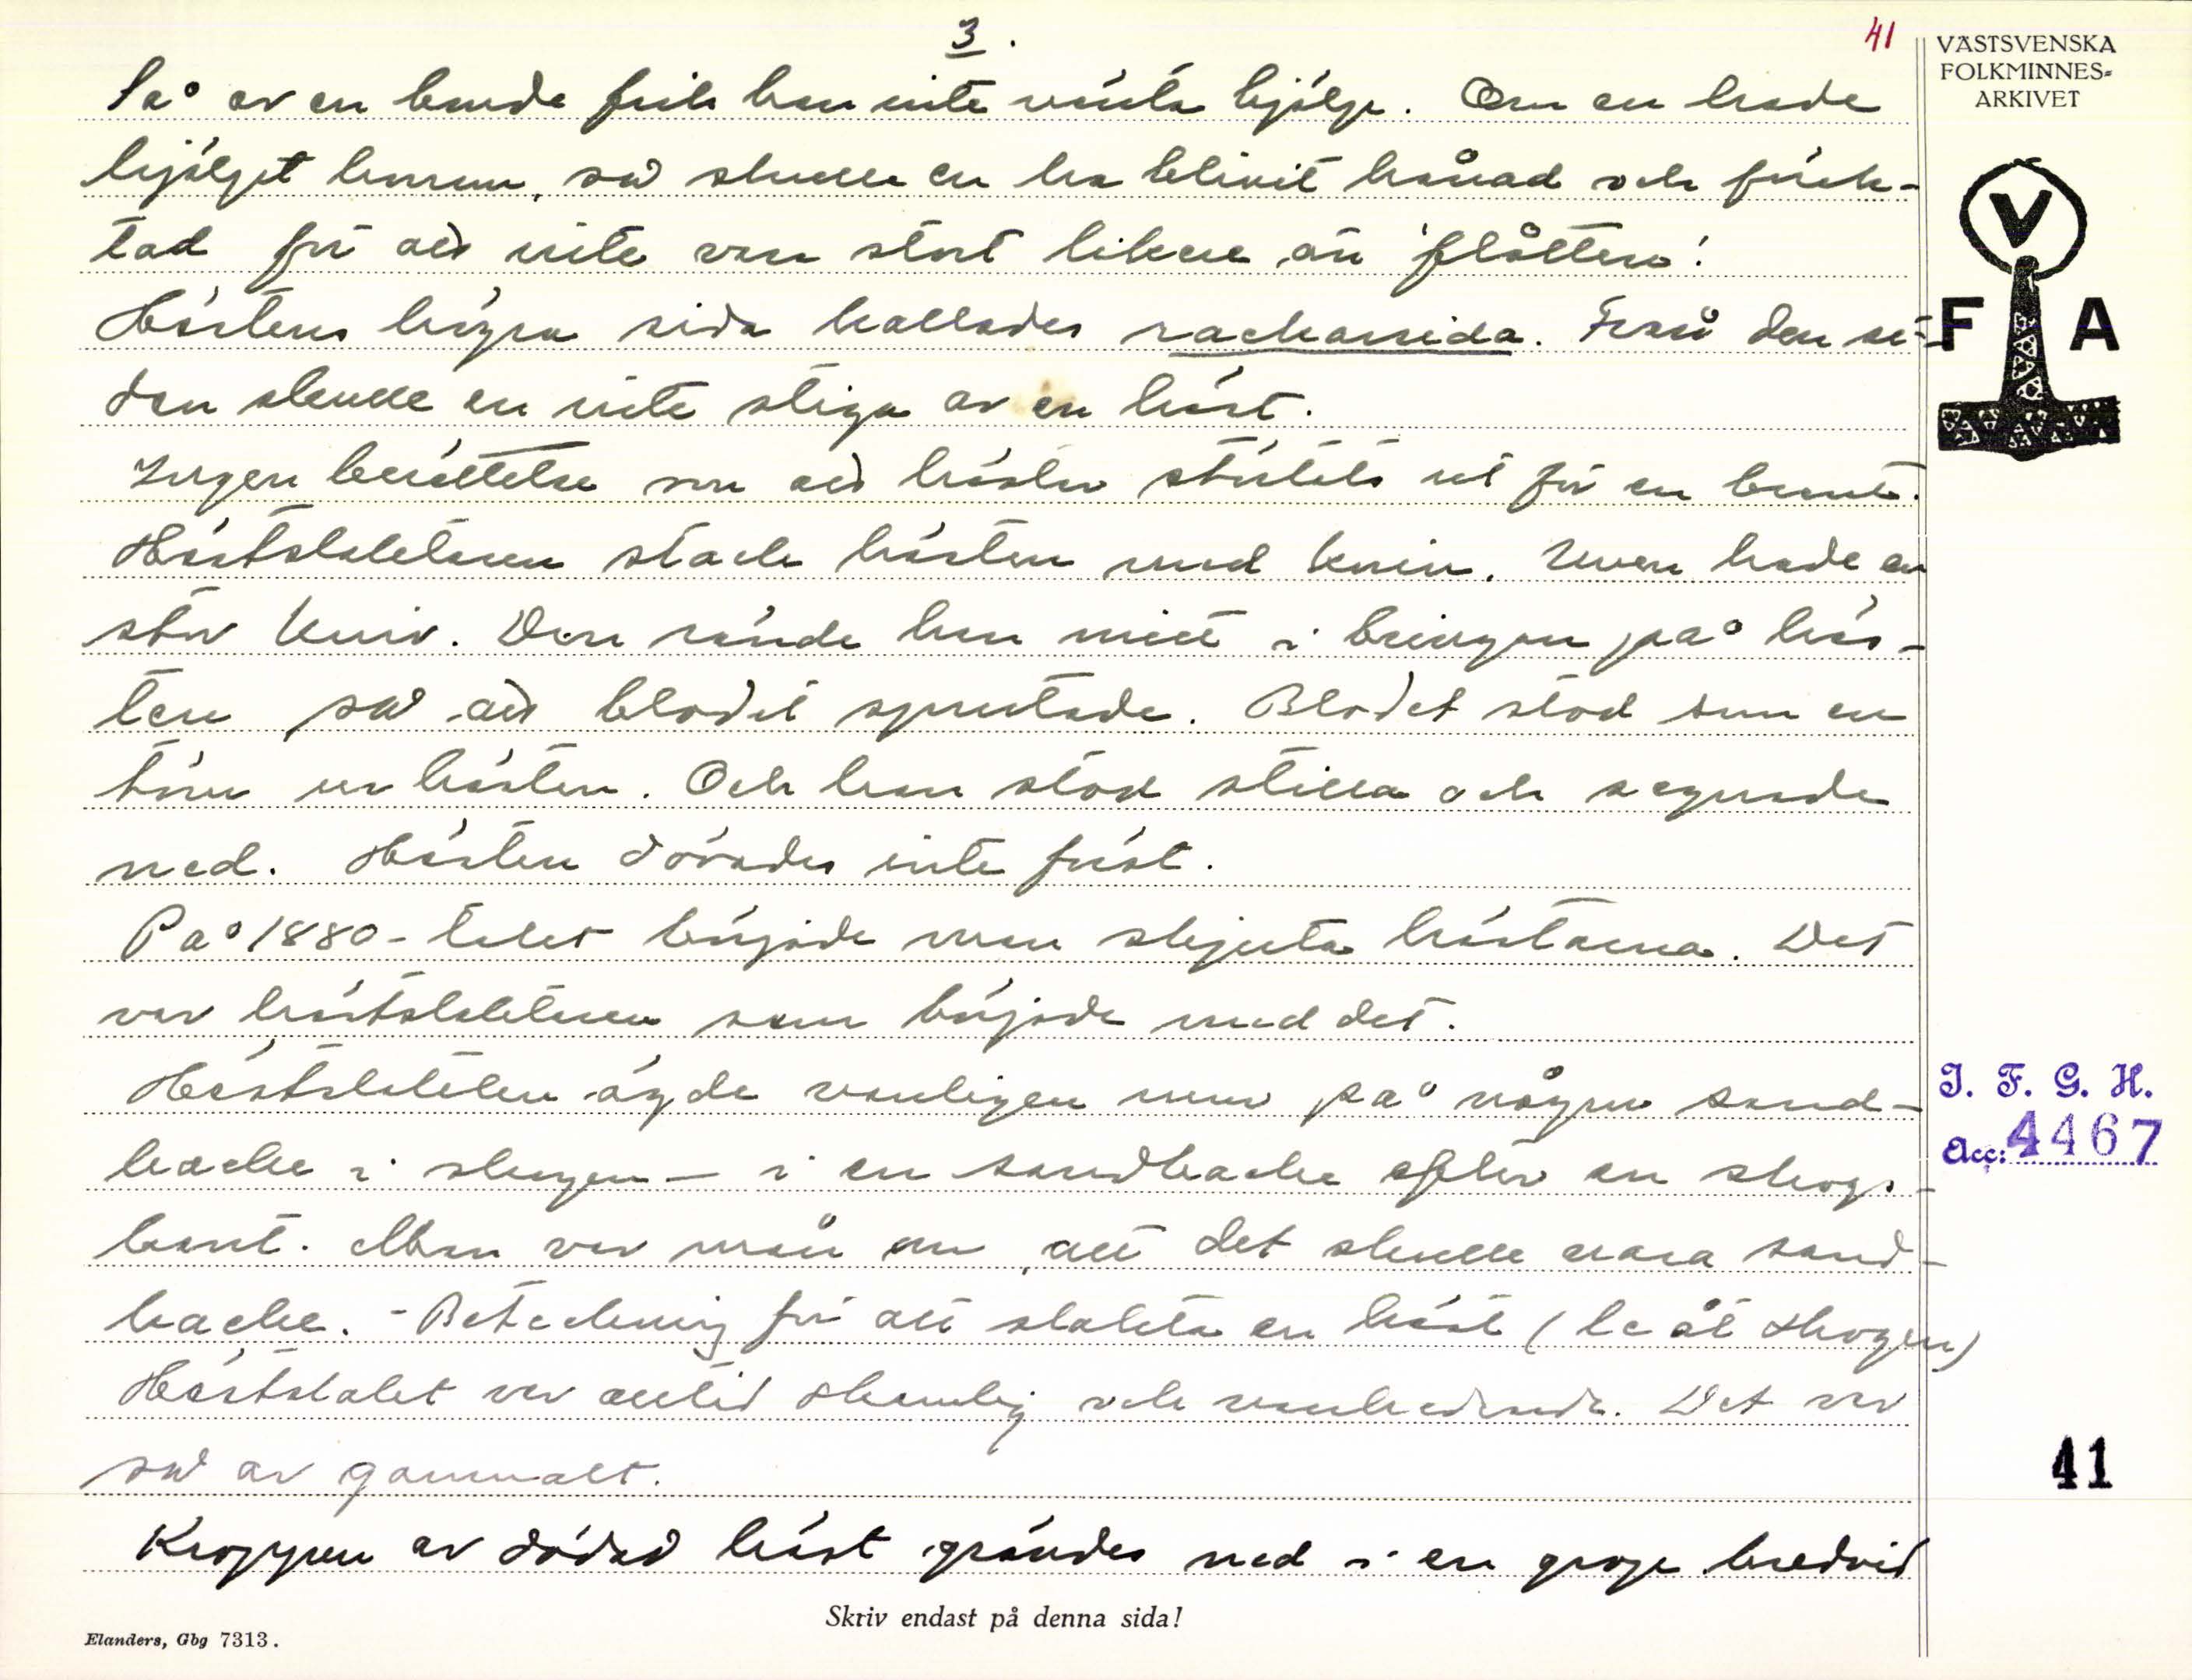 3.
41
VÄSTSVENSKA
FOLKMINNES-
ARKIVET
V
F A
Så av en bonde fick han inte vänta hjälp. Om en hade
hjälpt honom, så skulle en ha blivit hånad och föck-
tad för att inte vara stort likare än 'flåtten'.
Hästens högra sida kallades rackarsida. Från den si-
dan skulle en inte stiga av en häst.
Ingen berättelse om att hästen störtats ut för en brant.
Hästslaktaren stack hästen med kniv. Uven hade en
stor kniv. Den rände han mitt i bringan på häs-
ten så att blodet sprutade. Blodet stod som en
töm ur hästen. Och han stod stilla och segnade
ned. Hästen dövades inte först.
På 1880-talet började man skjuta hästarna. Det
var hästslaktaren som började med det.
Hästslakten ägde vanligen rum på någon sand-
backe i skogen - i en sandbacke efter en skogs-
kant. Man var mån om att det skulle vara sand-
backe. - Beteckning för att slakta en häst (le åt skogen)
Hästslakt var alltid skamlig och vanhedrande. Det var
så av gammalt.
Kroppen av dödad häst grävdes ned i en grop bredvid
I. F. G. H.
Acc: 4467
41
Skriv endast på denna sida!
Elanders, Gbg 7313.